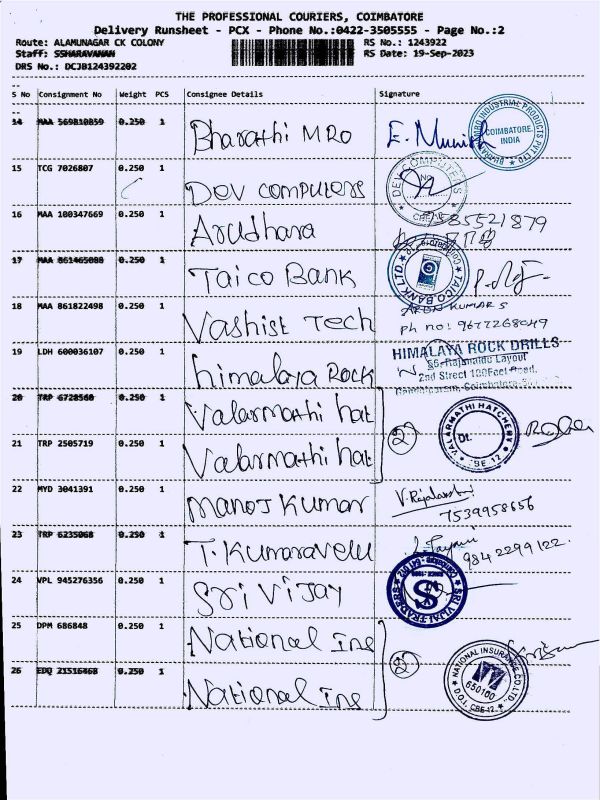 THE PROFESSIONAL COURIERS, COIMBATORE
Delivery Runsheet - PCX - Phone No.:0422-3505555 - Page No.:2
Route: ALAMUNAGAR CK COLONY RS No.: 1243922
Staff: SSHARAVANAN RS Date: 19-Sep-2023
DRS No.: DCJB124392202
S No Consignment No Weight PCS Consignee Details Signature
14 MAA 569810859 0.250 1 Bharathi MRO E. Munish
COIMBATORE. INDIA
15 TCG 7026807 0.250 1 DEV COMPUTERS
DEV COMPUTERS
16 MAA 100347669 0.250 1 Arudhara
17 MAA 861465088 0.250 1 Taico Bank
TAICO BANK LTD.
18 MAA 861822498 0.250 1 Vashist Tech ARUN KUMAR S
ph no: 9677268049
19 LDH 600036107 0.250 1 himalaya Rock HIMALAYA ROCK DRILLS
2nd Street 100Feet Road.
20 TRP 6728560 0.250 1 Valarmathi hat
VALARMATHI HATCHERY
CBE-12
21 TRP 2505719 0.250 1 Valarmathi hat
2
22 MYD 3041391 0.250 1 Manoj Kumar V. Rajalakshmi
7539958656
23 TRP 6235068 0.250 1 T. Kumaravelu
9842299122.
24 VPL 945276356 0.250 1 Sri Vijay
SRI VIJAI TRADERS
25 DPM 686848 0.250 1 National Ins
2
26 EDQ 21516468 0.250 1 National Ins
NATIONAL INSURANCE CO. LTD.
650100
CBE-12